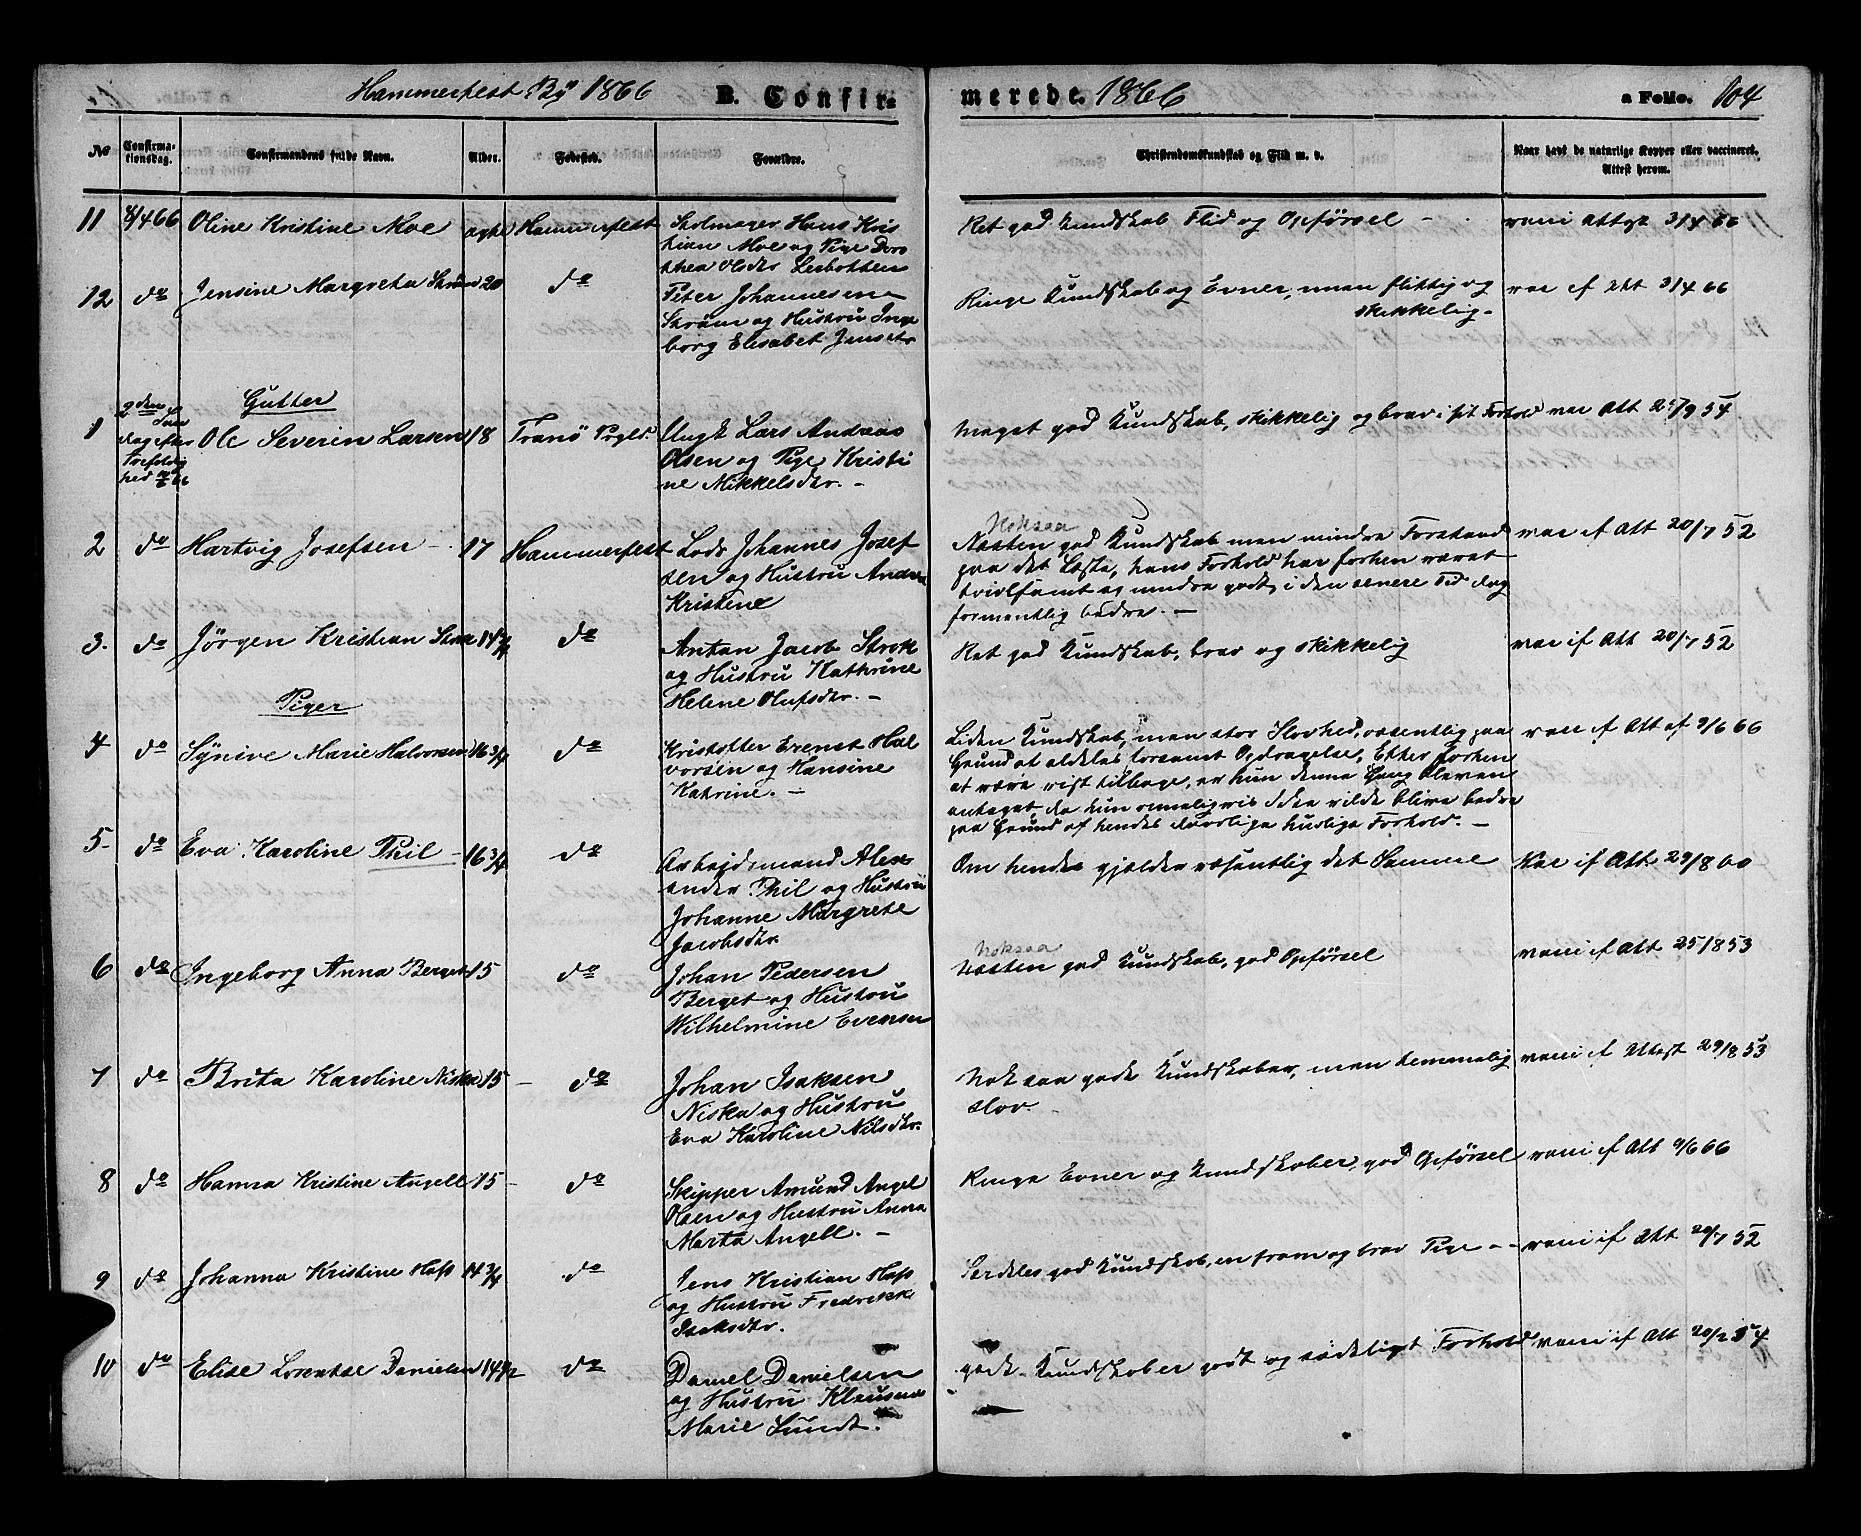 Hammerfest By 1866 B. Confir-
merede. 1866 a Folio. 104
No Confirma-tionsdag. Confirmandens fulde Navn. Alder. Fødested. Forældre. Christendomskundskab og Flid m. v. Naar havt de naturlige Kopper eller vaccineret. Attest herom.
11 8/4 66 Oline Kristine Moe Hammerfest Skolmager Hans Kris
tian Moe og Pige Doro
thea Olsdtr Leebotten
Ret god Kundskab Flid og Opførsel - vacci Attest 3/4 66
12 do Jensine Margreta Strøm 20 do Peter Johannesen
Strøm og Hustru Inge
borg Elisabet Jensdtr
Ringe Kundskab og Evner, men flittig og
skikkelig.
vac if Att 3/4 66
Gutter
1 2den Søn
dag efter
Trefoldig
hed
Ole Severin Larsen 18 Tranø Prgld. Ungk Lars Andreas
Olsen og Pige Kristi
ne Mikkelsdtr. -
Meget god Kundskab, skikkelig og brav i sit Forhold vac Att 25/9 54
2 do Hartvig Josefsen 17 Hammerfest Lods Johannes Josef
sen og Hustru Andrea
Kristine
Noksaa
Næsten god Kundskab men mindre Forstand
paa det Læste, hans Forhold har forhen været
tvivlsomt og mindre godt, i den senere Tid dog
formentlig bedre. -
vac if Att 20/7 52
3. do Jørgen Kristian Strok 14 3/4 do Anton Jacob Strok
og Hustru Kathrine
Helene Olufsdtr. -
Ret god Kundskab, brav og skikkelig vac if Att 20/7 52
Piger
4 do Synive Marie Halvorsen 16 3/4 do Kristoffer Erenst Hal
vorsen og Hansine
Katrine. -
Liden Kundskab, men stor Sløvhed, væsentlig paa
Grund af aldeles forsømt Opdragelse. Efter forhen
at være vist tilbage, er hun denne Gang bleven
antaget da hun rimeligvis ikke vilde blive bedre
paa Grund af hendes daarlige huslige Forhold. -
vac if Att af 9/6 66
5 do Eva Karoline Phil 16 3/4 do Arbejdsmand Alex
ander Phil og Hustru
Johanne Margrete
Jacobsdtr.
Om hendes gjælder væsentlig det Samme Vac if Att 29/8 60
6 do Ingeborg Anna Berget 15 do Johan Pedersen
Berget og Hustru
Wilhelmine Evensen
Noksaa
Næsten god Kundskab, god Opførsel vacci if Att 25/8 53
7 do Brita Karoline Niska 15 do Johan Isaksen
Niska og Hustru
Eva Karoline Nilsdtr.
Nok saa gode Kundskaber, men temmelig
sløv.
vacci if Attest 29/8 53
8 do Hanna Kristine Angell 15 do Skipper Amund Angel
Olsen og Hustru Anna
Marta Angell. -
Ringe Evner og Kundskaber, god Opførsel vacci if Att 9/6 66
9 do Johanna Kristine Hass 14 3/4 do Jens Kristian Hass
og Hustru Fredrikke
Isaksdtr.
Særdeles god Kundskab, en from og brav Pige - - vacci if Att 20/7 52
10 do Elise Lorentze Danielsen 14 1/2 do Daniel Danielsen
og Hustru Klausine
Marie Lundt.
gode Kundskaber godt og sædeligt Forhold vacci if Att 20/2 54